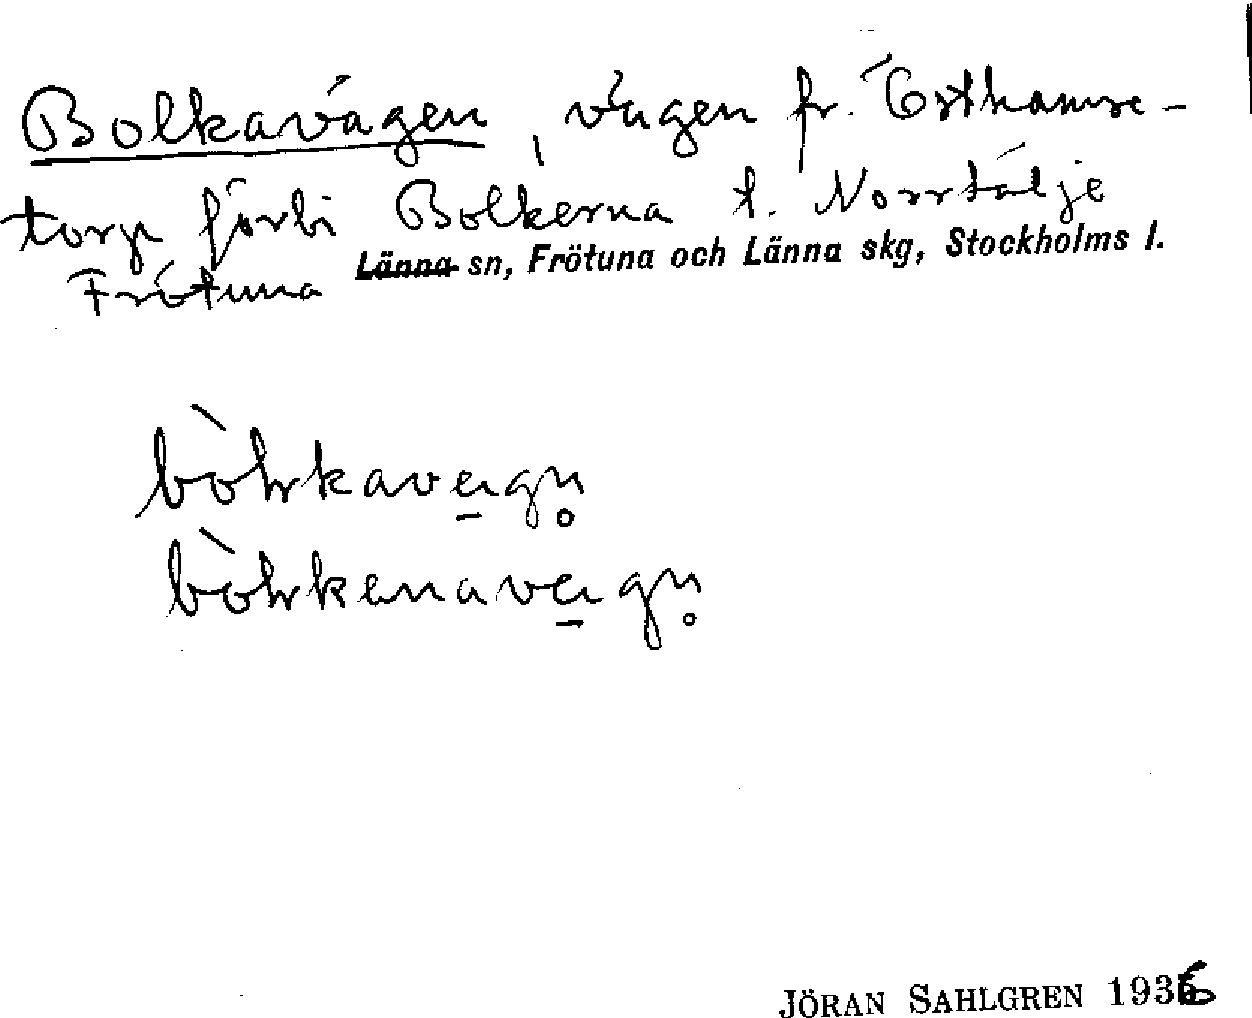 Bolkavägen, vägen fr. Östhamra-
torp förbi Bolkerna t. Norrtälje
Länna sn, Frötuna och Länna skg, Stockholms l.
Frötuna
JÖRAN SAHLGREN 1936